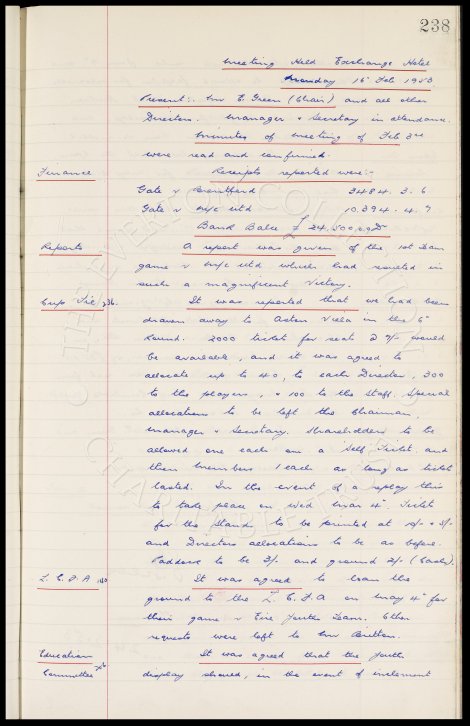 238
Meeting Held Exchange Hotel
Monday 16 Feb 1953.
Present:. Mr E. Green (Chair) and all other
Directors. Manager & Secretary in attendance.
Minutes of meeting of Feb 3rd
were read and confirmed.
Finance Receipts reported were:-
Gate v Brentford 3484. 3. 6
Gate v M/c Utd 10,394. 4. 7
Bank Balce £ 24,500
Reports A report was given of the 1st Team
game v M/c Utd which had resulted in
such a magnificent victory.
Cup Tie It was reported that we had been
drawn away to Aston Villa in the 6th
Round. 2000 tickets for seats @ would
be available, and it was agreed to
allocate up to 40, to each Director, 300
to the players, & 100 to the staff. Special
allocations to be left the Chairman,
Manager & Secretary. Shareholders to be
allowed one each on a Self Ticket and
then members 1 each as long as tickets
lasted. In the event of a replay this
to take place on Wed Mar 4th. Tickets
for the Stands to be printed at 10/- &
and Directors allocations to be as before.
Paddock to be 3/- and ground 2/- (Cash).
L. C. F. A It was agreed to loan the
ground to the L. C. F. A on May 4th for
their game v Eire Youth Team. Other
requests were left to Mr
Education It was agreed that the youth
Committee display should, in the event of inclement
THE EVERTON COLLECTION
CHARITABLE TRUST